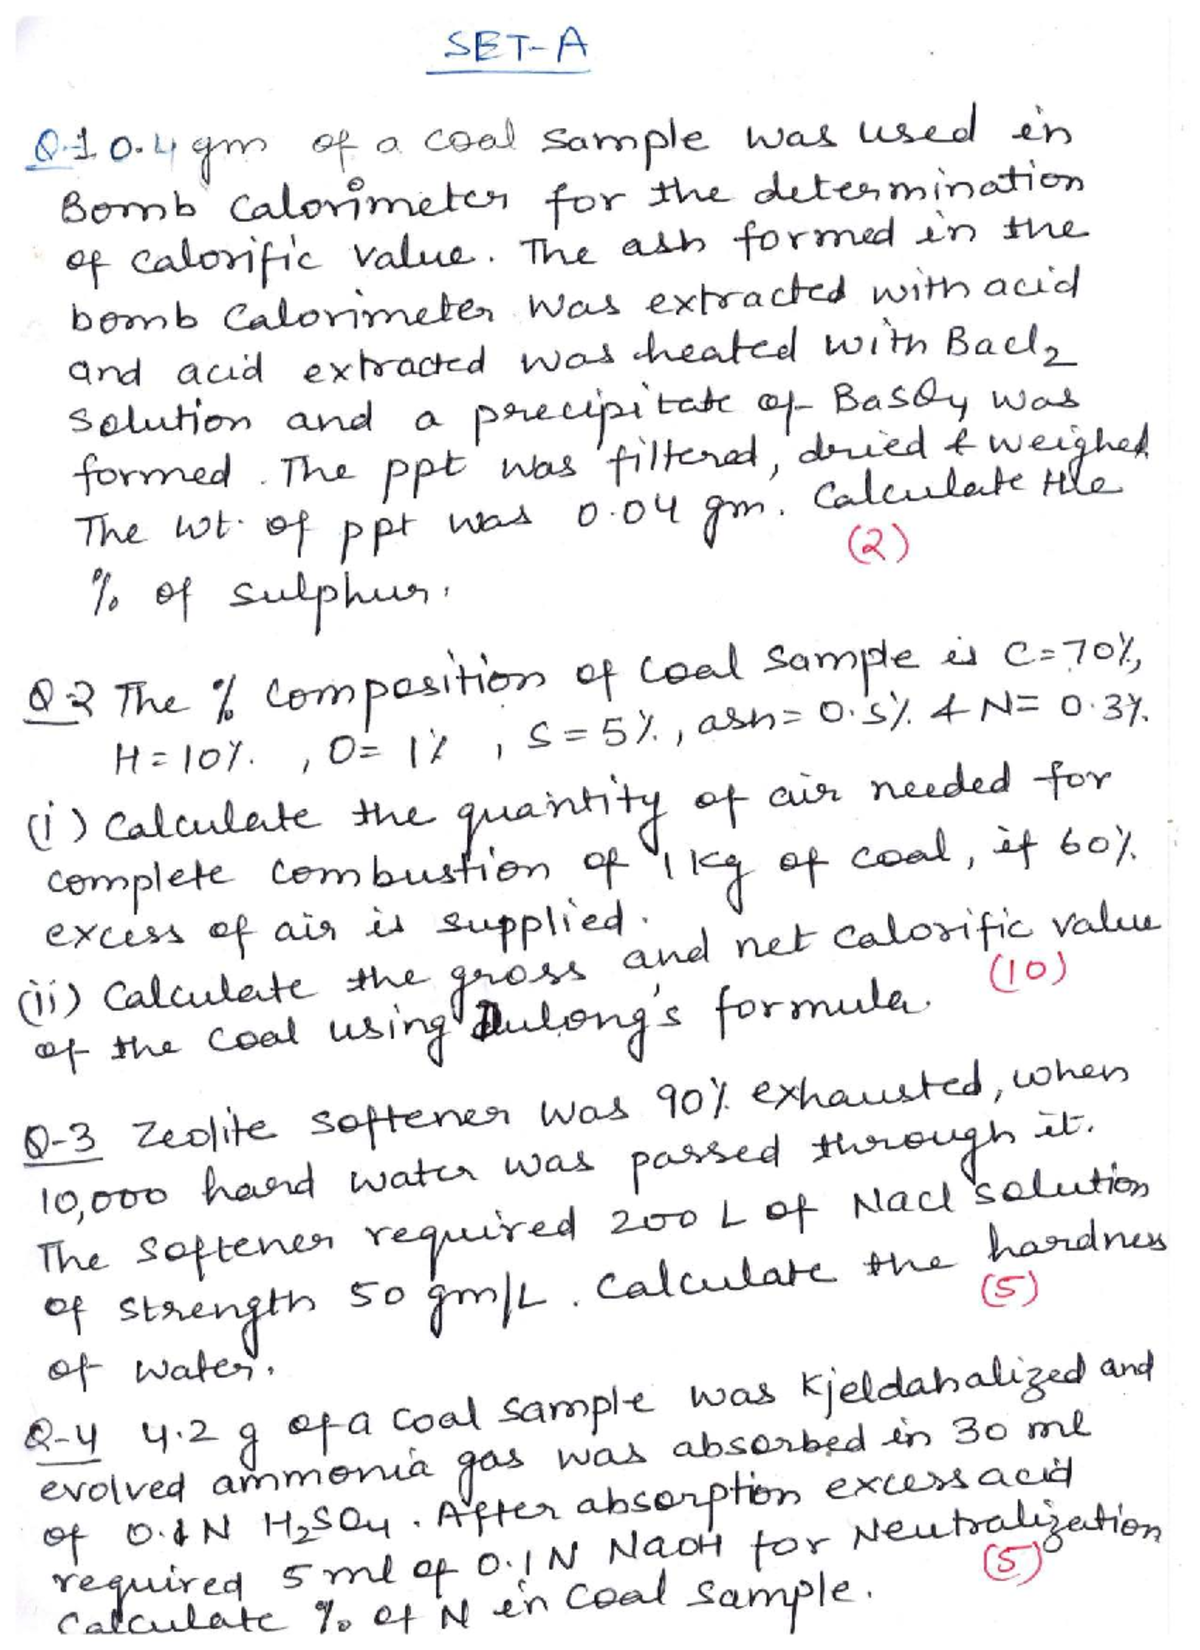 SET-A
Q.1 0.4 gm of a coal sample was used in
Bomb calorimeter for the determination
of calorific value. The ash formed in the
bomb calorimeter was extracted with acid
and acid extracted was heated with Bacl2
solution and a precipitate of BaSO4 was
formed. The ppt was filtered, dried & weighed
The wt. of ppt was 0.04 gm. Calculate the
% of sulphur. (2)
Q-2 The % composition of coal sample is C=70%,
H=10%., O=1%, S=5%., ash=0.5%. & N=0.3%.
(i) Calculate the quantity of air needed for
complete combustion of 1 kg of coal, if 60%.
excess of air is supplied.
(ii) Calculate the gross and net calorific value
of the coal using Dulong's formula. (10)
Q-3 Zeolite softener was 90% exhausted, when
10,000 hard water was passed through it.
The softener required 200 L of Nacl solution
of strength 50 gm/L. Calculate the hardness
of water. (5)
Q-4 4.2 g of a coal sample was kjeldahalized and
evolved ammonia gas was absorbed in 30 ml
of 0.1 N H2SO4. After absorption excess acid
required 5 ml of 0.1 N NaOH for Neutralization
Calculate % of N in coal sample. (5)